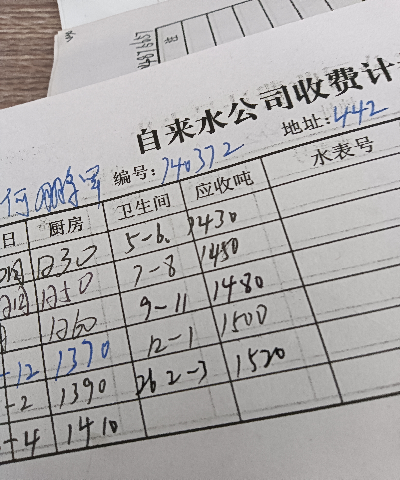 自来水公司收费计
何 编号: 740372 地址: 442
日 厨房 卫生间 应收吨 水表号
1230 5-6. 1430
1250 7-8 1450
1260 9-11 1480
-12 1370 12-1 1500
-2 1390 26 2-3 1520
-4 1410